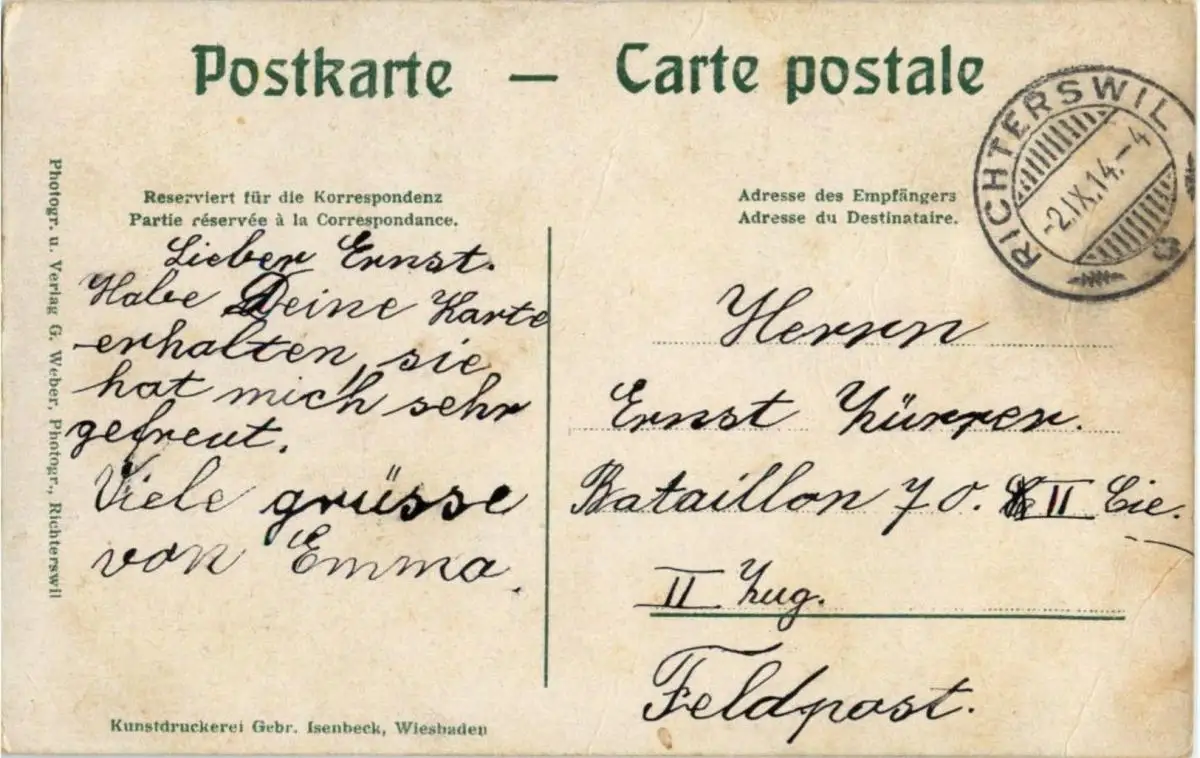 Postkarte — Carte postale
RICHTERSWIL
-2.IX.14.-4
Reserviert für die Korrespondenz
Partie réservée à la Correspondance.
Lieber Ernst.
Habe Deine Karte
erhalten, sie
hat mich sehr
gefreut.
Viele grüsse
von Emma.
Adresse des Empfängers
Adresse du Destinataire.
Herrn
Ernst Zürrer.
Bataillon 70. II Cie.
II Zug.
Feldpost.
Photogr. u. Verlag G. Weber, Photogr., Richterswil
Kunstdruckerei Gebr. Isenbeck, Wiesbaden